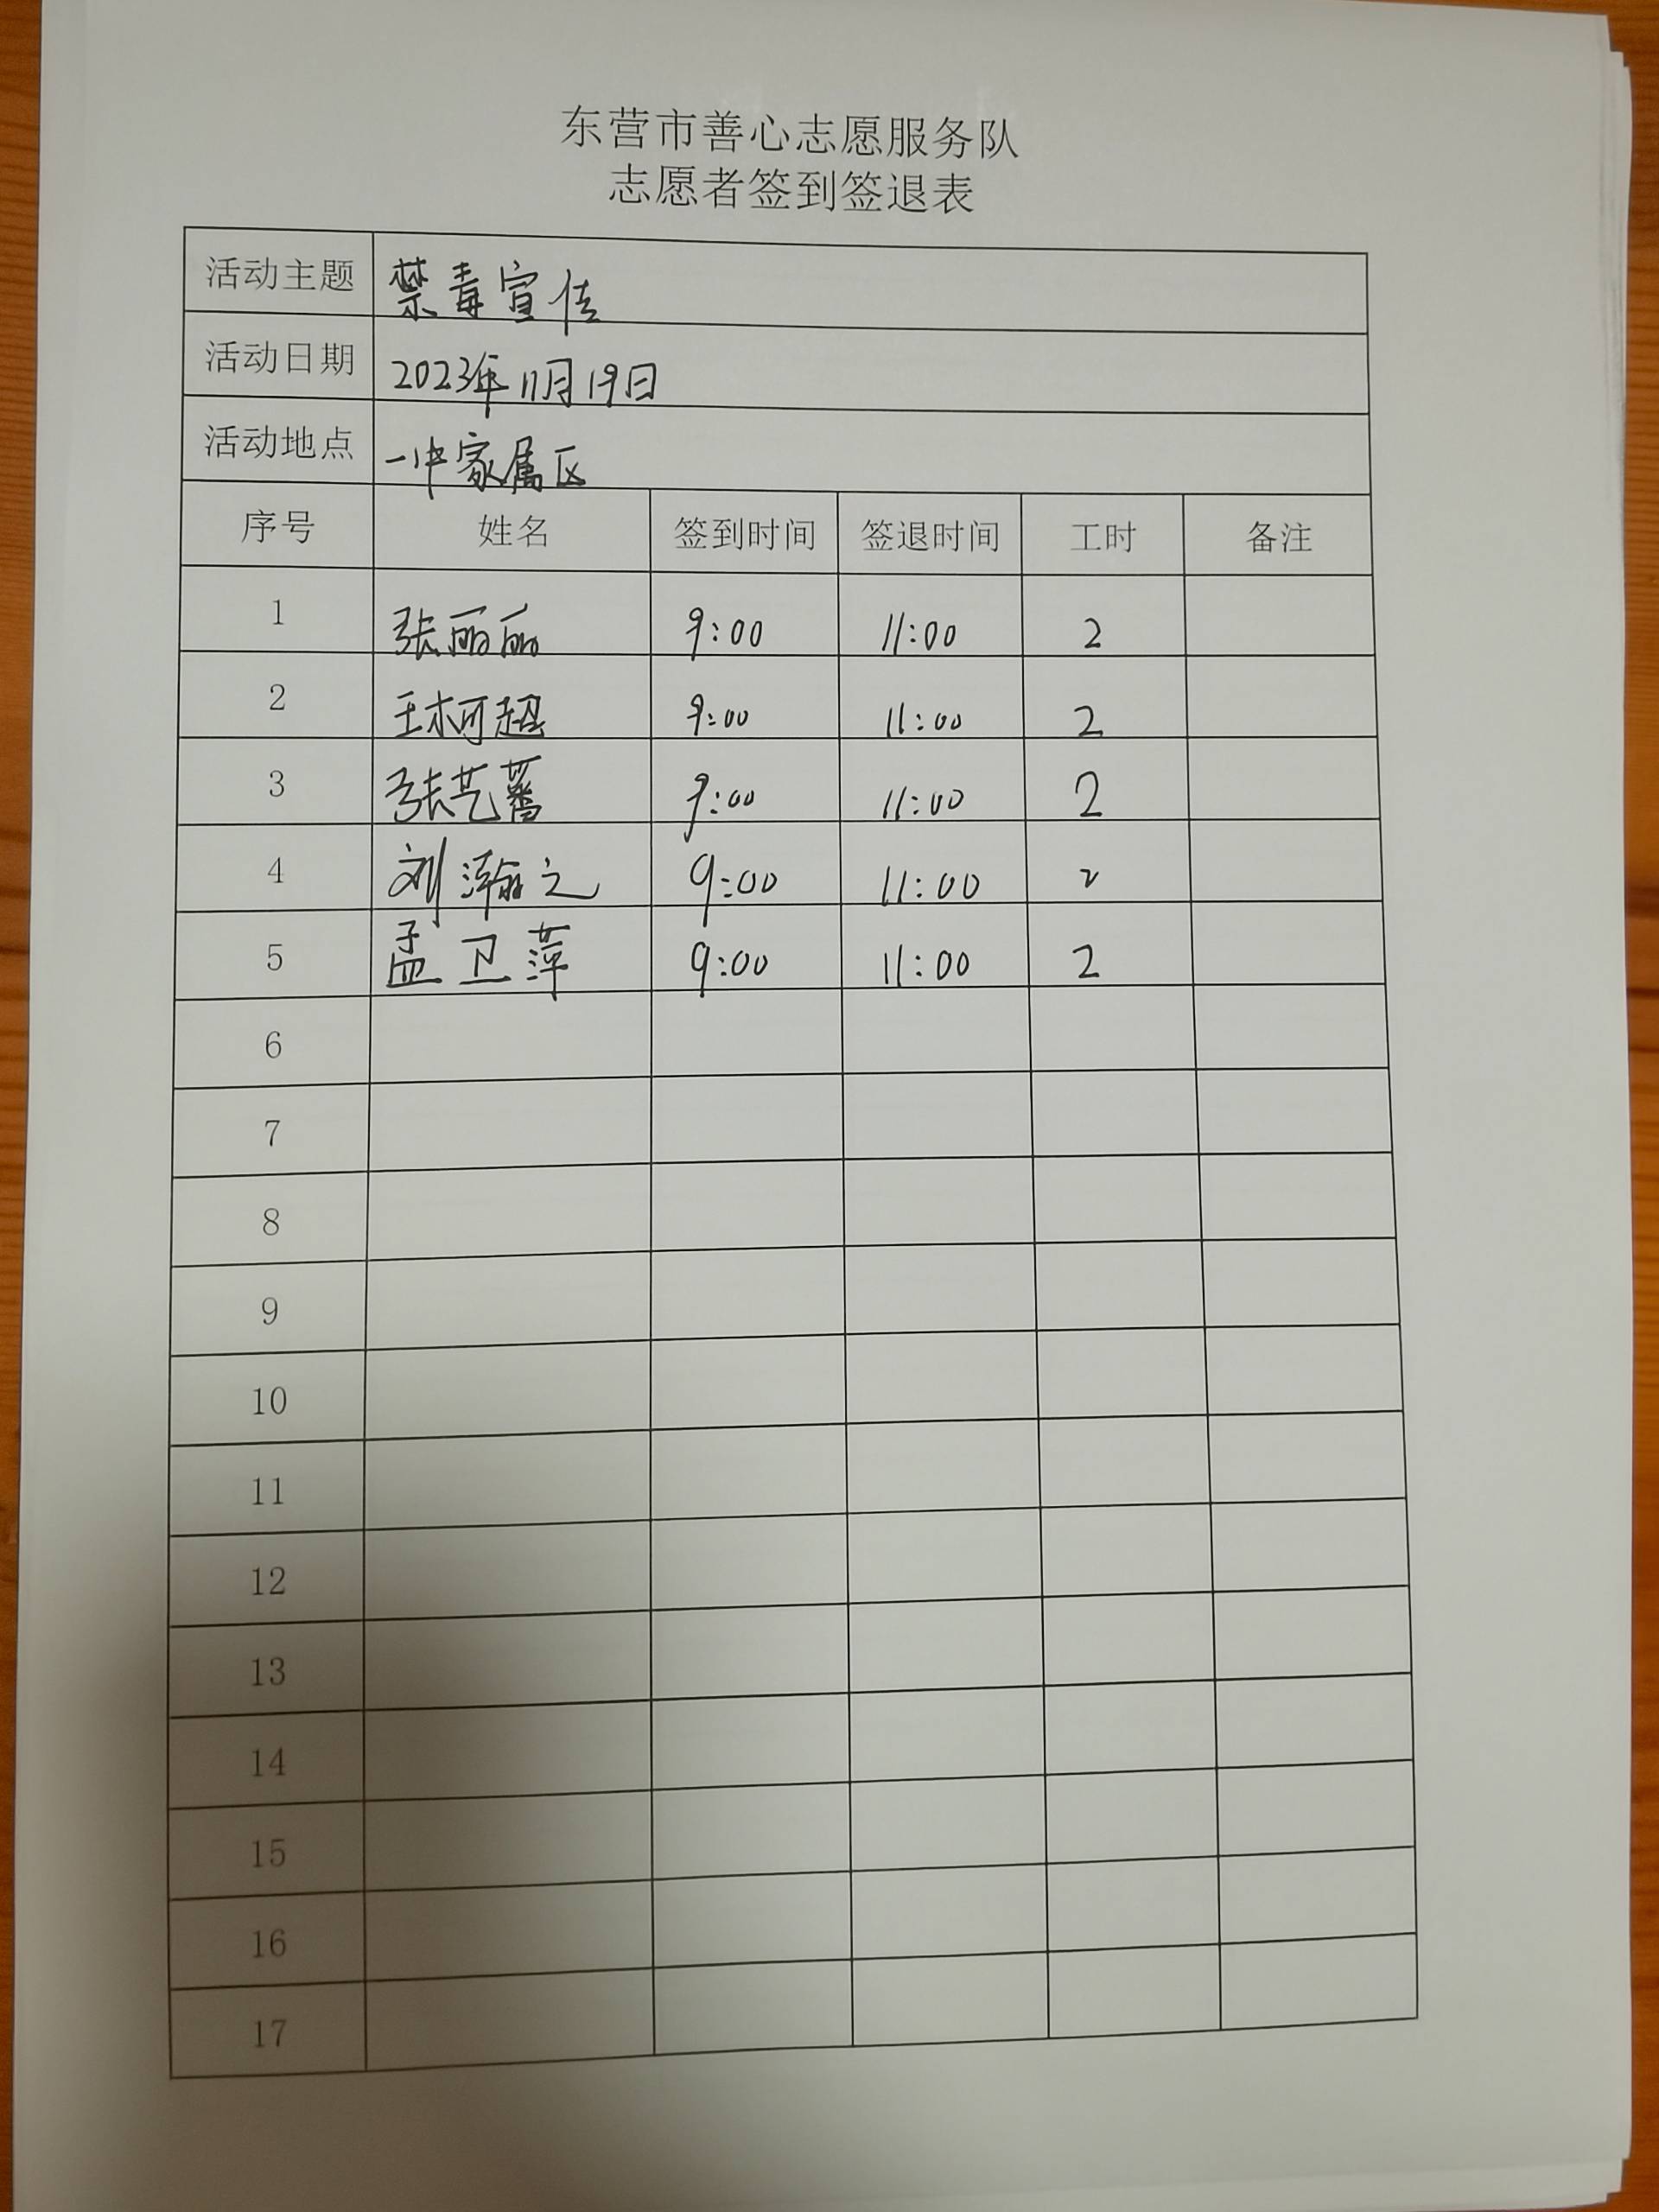 东营市善心志愿服务队
志愿者签到签退表
活动主题 禁毒宣传
活动日期 2023年11月19日
活动地点 一中家属区
序号 姓名 签到时间 签退时间 工时 备注
1 张丽丽 9:00 11:00 2
2 王柯超 9:00 11:00 2
3 张艺蕃 9:00 11:00 2
4 刘瀚之 9:00 11:00 2
5 孟卫萍 9:00 11:00 2
6
7
8
9
10
11
12
13
14
15
16
17